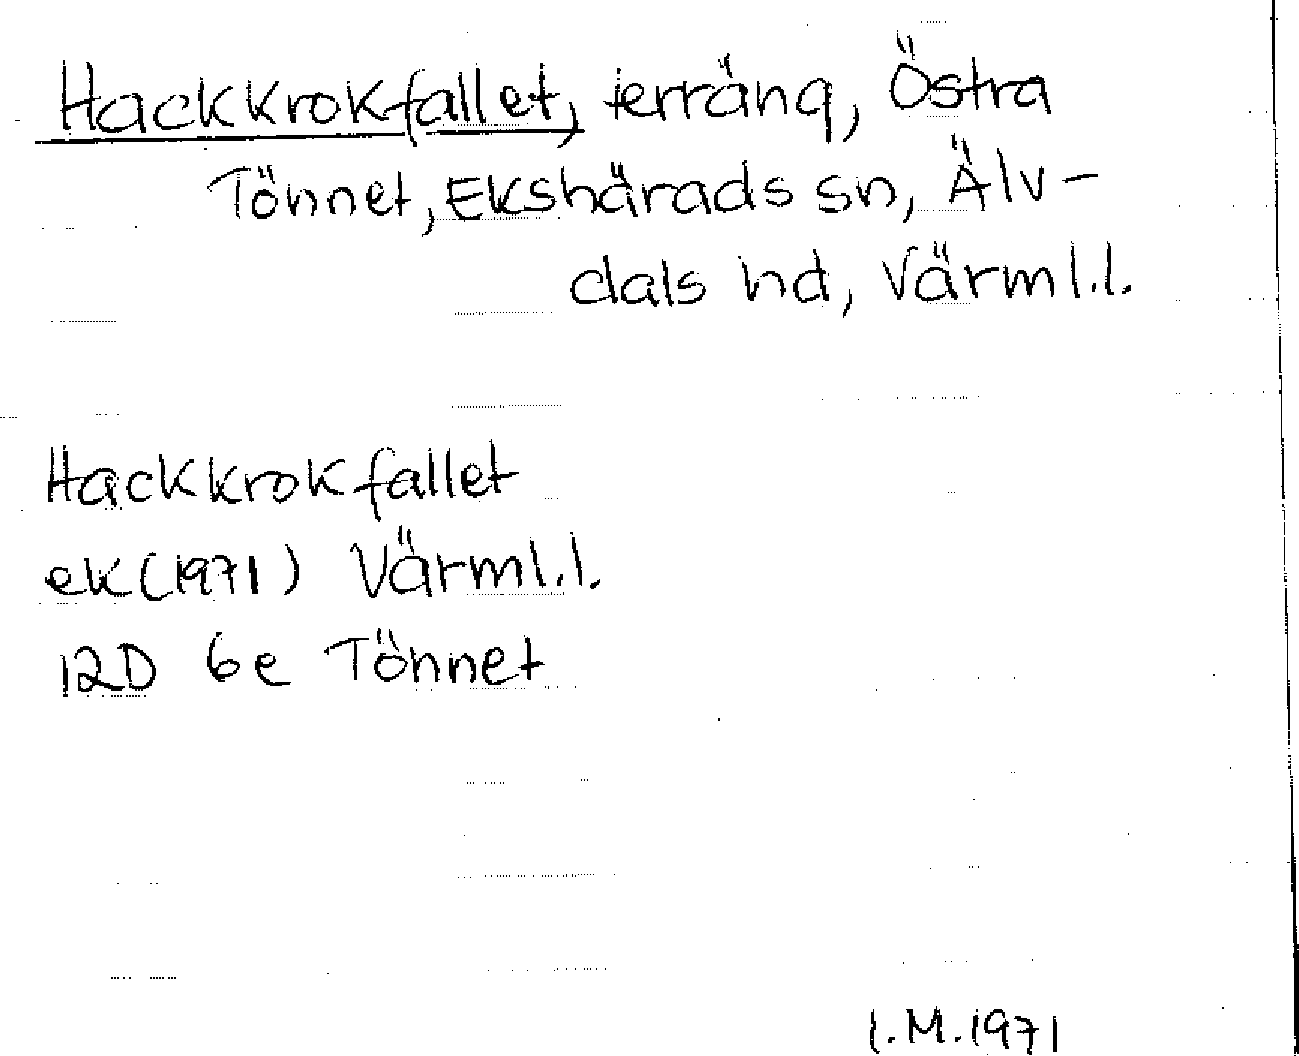 Hackkrokfallet, terräng, Östra
Tönnet, Ekshärads sn, Älv-
dals hd, Värml.l.
Hackkrokfallet
ek (1971) Värml.l.
12D 6e Tönnet
I.M. 1971